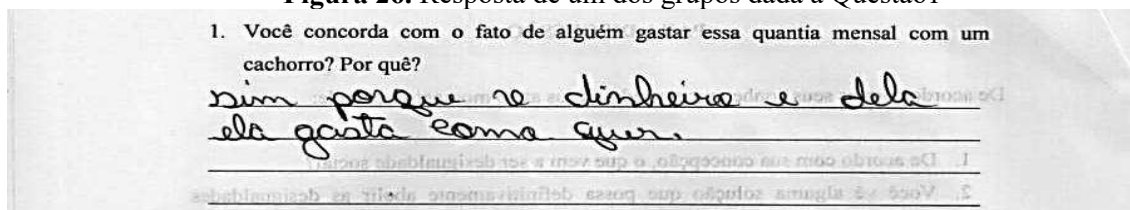 Resposta de um dos grupos dada à Questão1
1. Você concorda com o fato de alguém gastar essa quantia mensal com um
cachorro? Por quê?
sim porque o dinheiro e dela
ela gasta como quer.